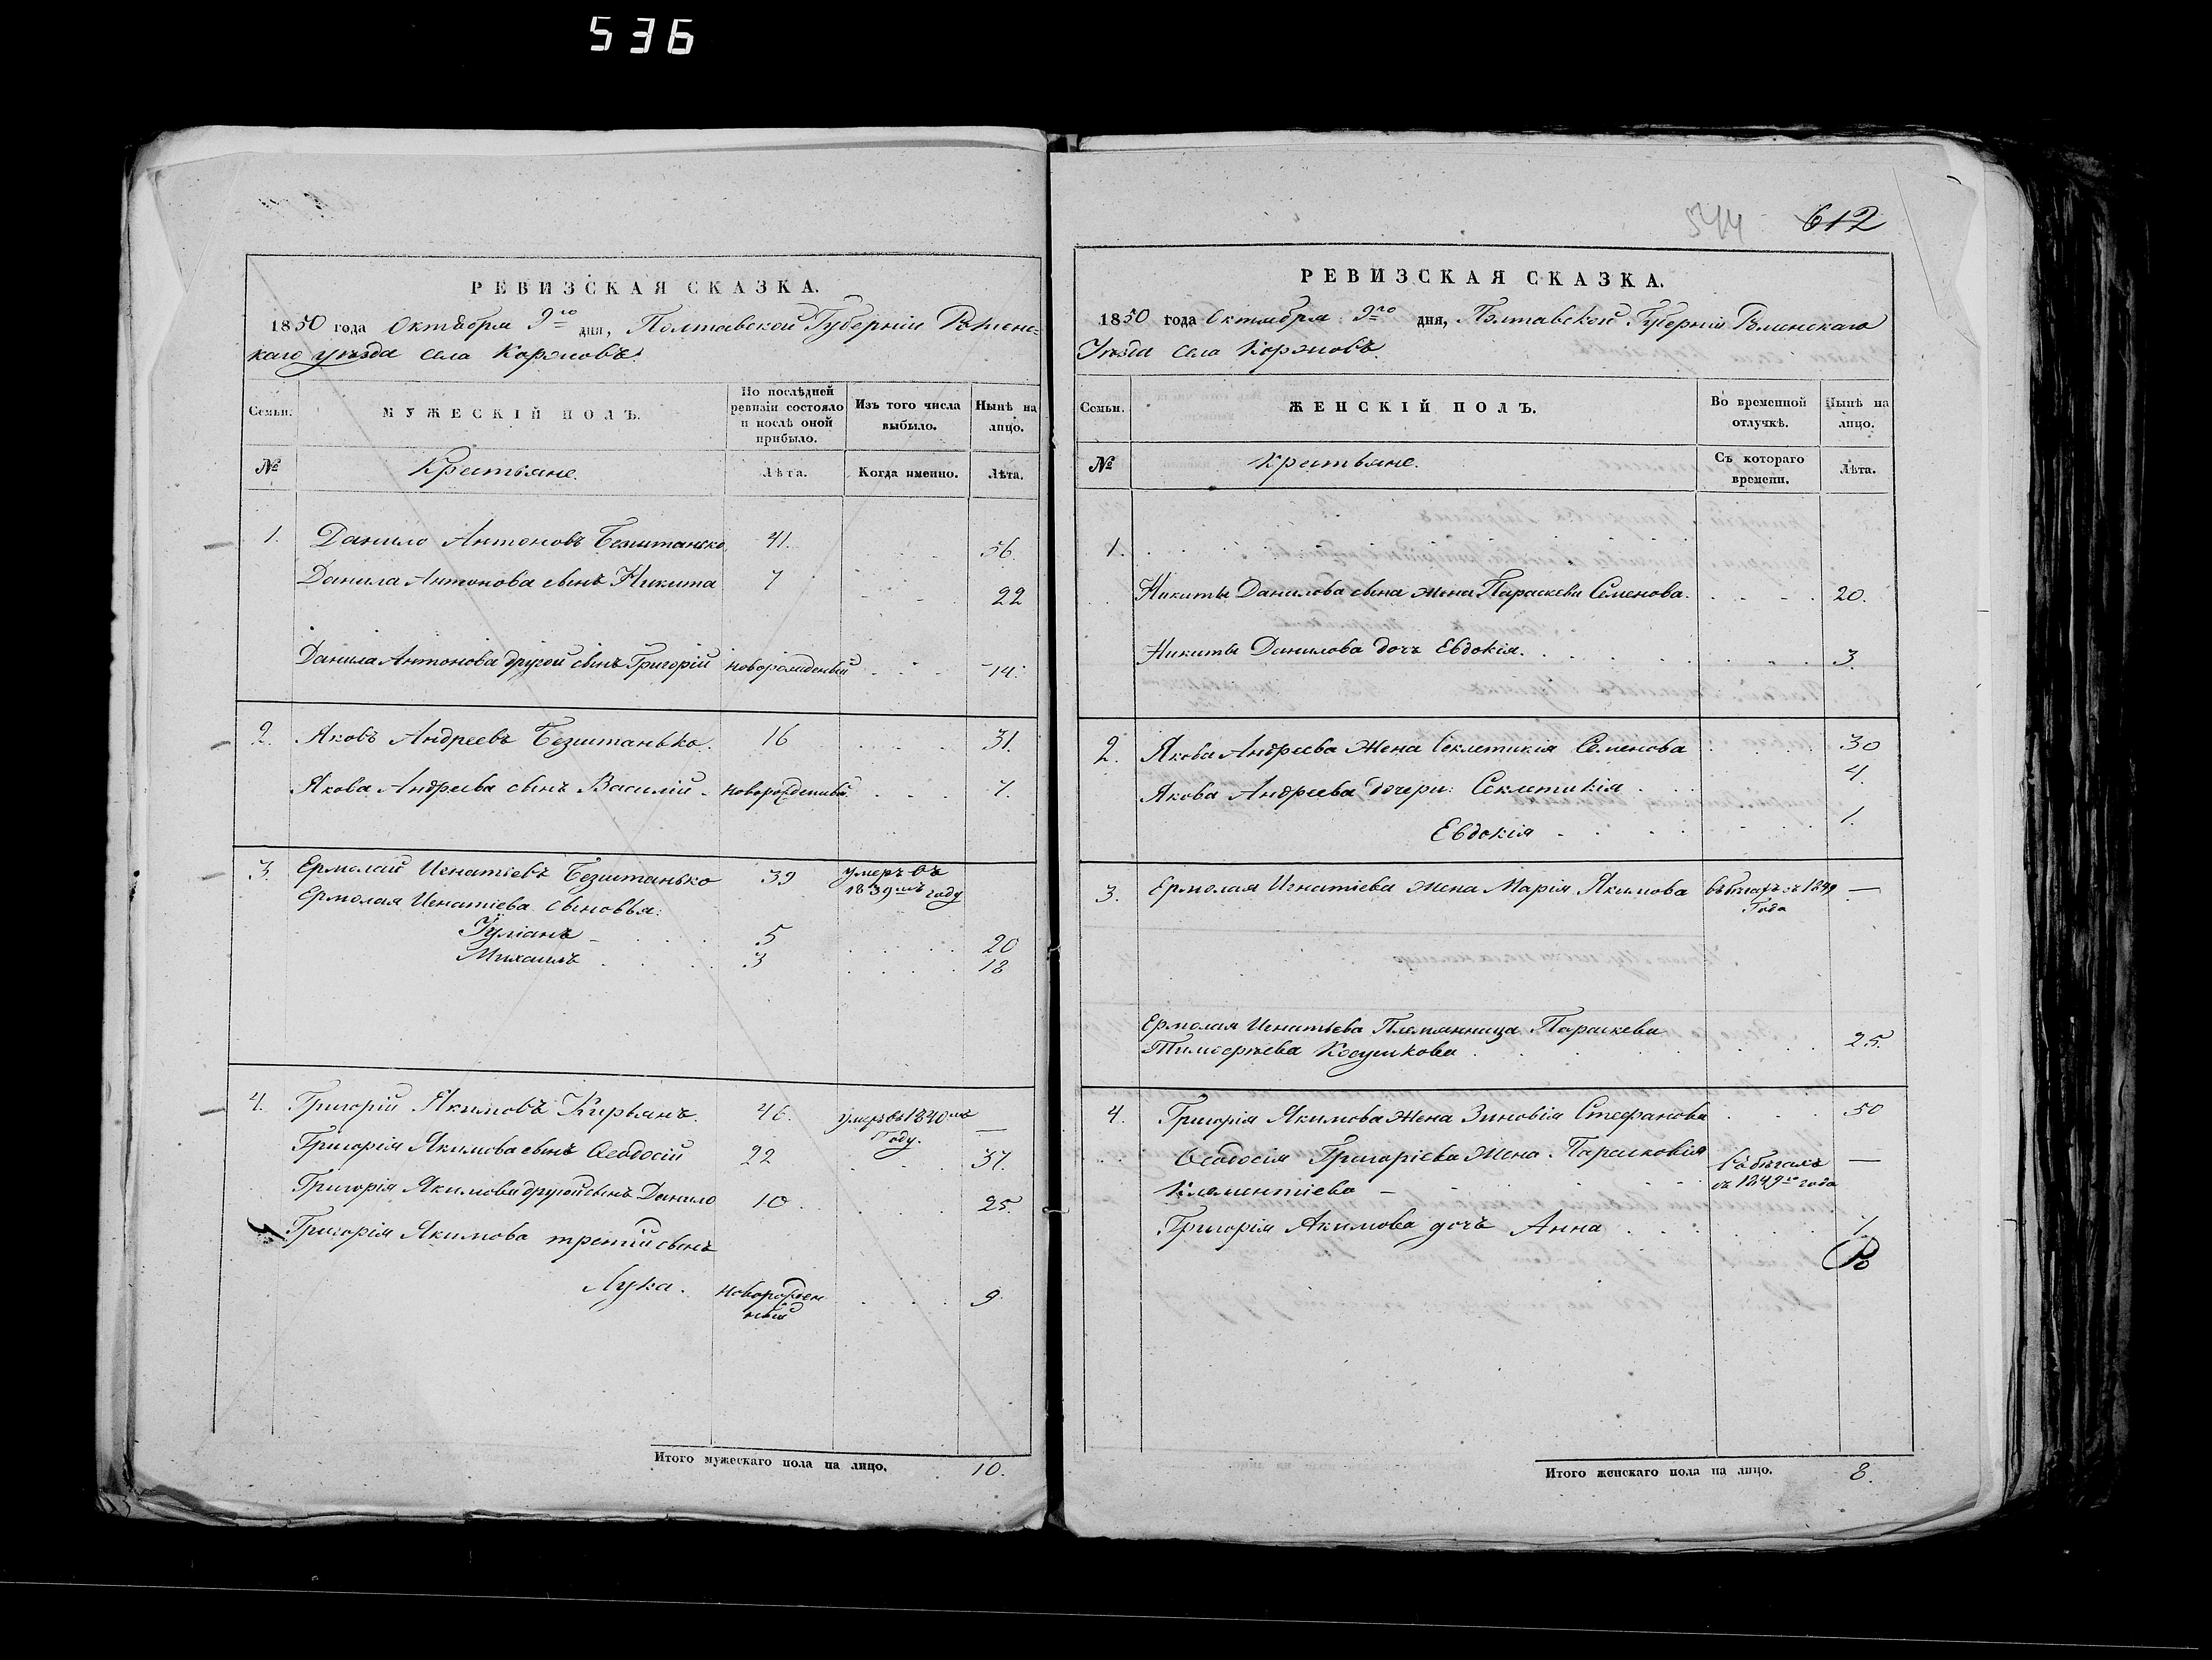 536
РЕВИЗСКАЯ СКАЗКА.
1850 года Октября 9го дня, Полтавской Губерніи Роменс-
каго уѣзда села Коржовъ.
Семьи. МУЖЕСКІЙ ПОЛЪ. По послѣдней ревизіи состояло и послѣ оной прибыло. Изъ того числа выбыло. Нынѣ на лицо.
№ Крестьяне. Лѣта. Когда именно. Лѣта.
1. Данило Антоновъ Безштанько 41. 56.
Данила Антонова сынъ Никита 7 22
Данила Антонова другой сынъ Григорій новорожденый 14.
2. Яковъ Андреевъ Безштанько. 16 31.
Якова Андреева сынъ Василій новорожденый 7.
3. Ермолай Игнатіевъ Безштанько 39 умеръ въ 1839мъ году
Ермолая Игнатіева сыновья:
Іуліанъ 5 20
Михаилъ 3 18
4. Григорій Якимовъ Кирьянъ. 46. умеръ въ 1840мъ Году. —
Григорія Якимова сынъ Ѳеодосій 22 37.
Григорія Якимова другой сынъ Данило 10. 25.
Григорія Якимова третій сынъ
Лука. новорожден
ный 9
Итого мужескаго пола на лицо. 10.
544 612
РЕВИЗСКАЯ СКАЗКА.
1850 года Октября 9го дня, Полтавской Губерніи Роменскаго
Уѣзда села Коржовъ.
Семьи. ЖЕНСКІЙ ПОЛЪ. Во временной отлучкѣ. Нынѣ на лицо.
№ Крестьяне. Съ котораго времени. Лѣта.
1.
Никиты Данилова сына жена Параскеви Семенова. 20.
Никиты Данилова дочь Евдокія. 3.
2. Якова Андреева жена Секлетикія Семенова 30
Якова Андреева дочери: Секлетикія 4.
Евдокія 1.
3. Ермолая Игнатіева жена Марія Якимова въ бѣгахъ съ 1849 Года —
Ермолая Игнатьева Племянница Параскева
Тимоеѣева 25.
4. Григорія Якимова жена Зиновія Стефанова 50
Ѳеодосія Григоріева жена Парасковія въ бѣгахъ —
Климентіева съ 1849го года
Григорія Якимова дочь Анна 1.
Итого женскаго пола на лицо. 8.